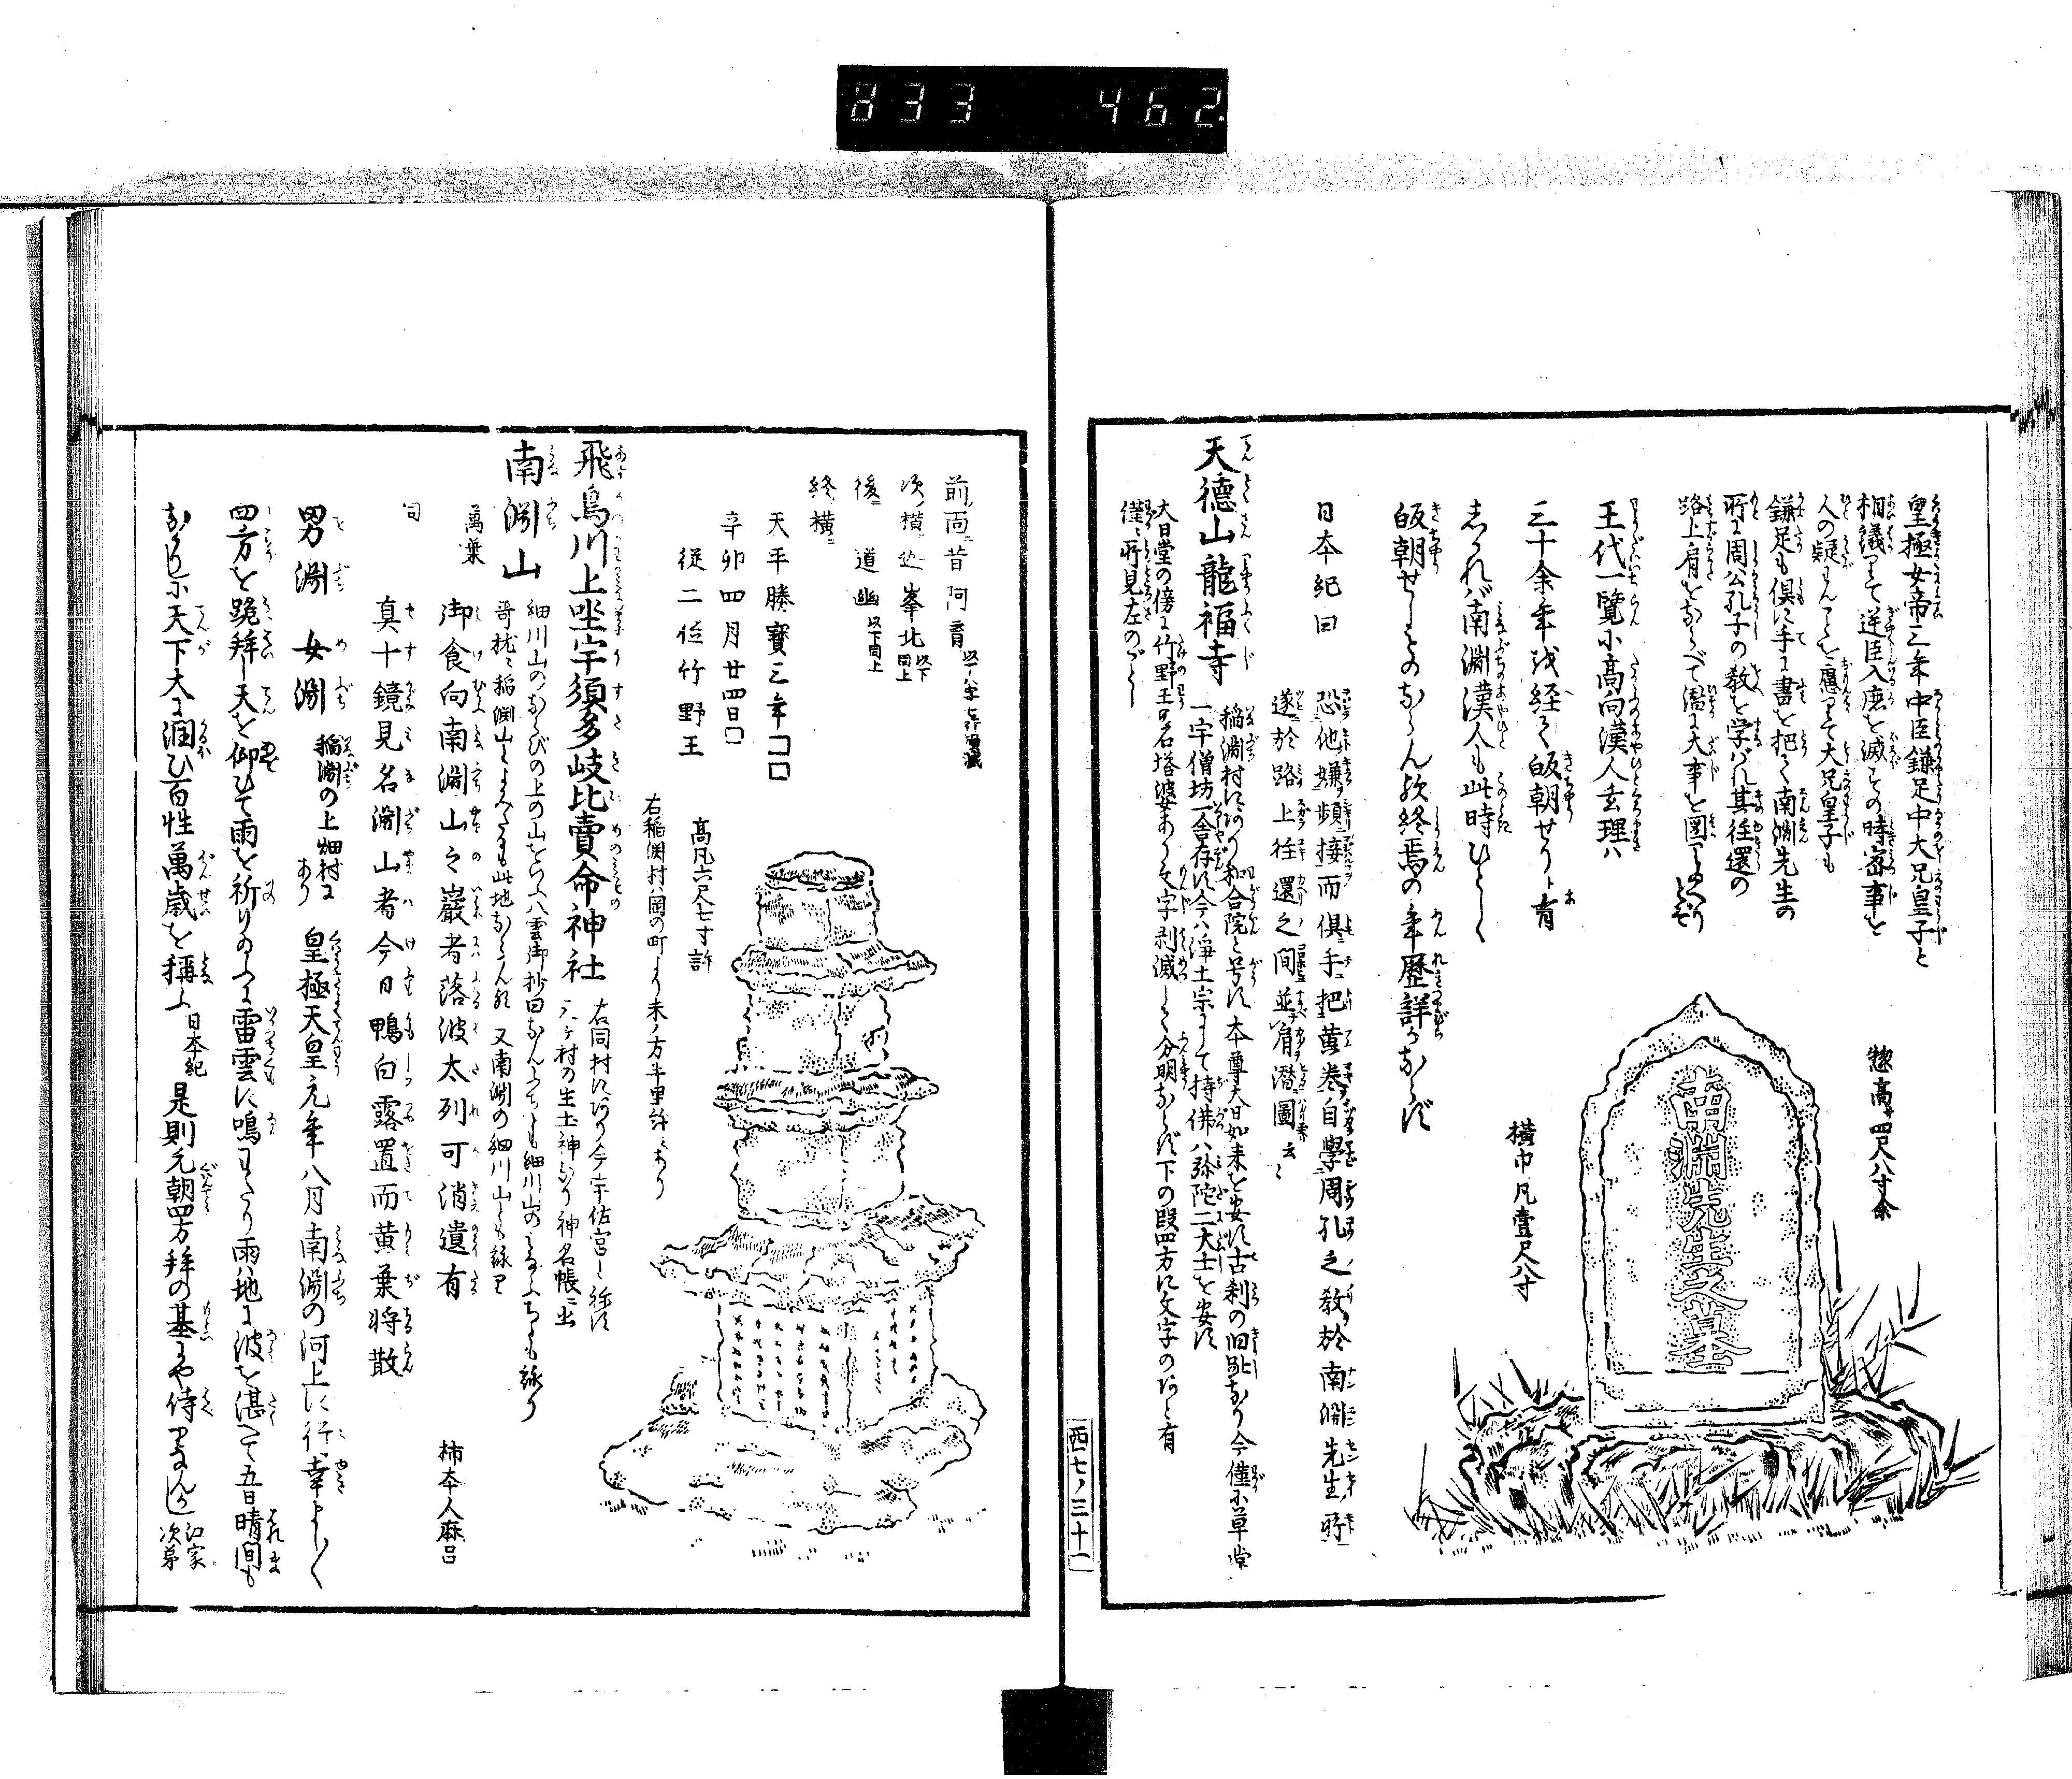 833 462.
皇極女帝三年中臣鎌足中大兄皇子と
相議りて逆臣入鹿を滅その時密事を
人の疑はんことを慮りて大兄皇子も
鎌足も倶に手に書を把て南淵先生の
所に周公孔子の教を学バれ其往還の
路上肩をならべて潜に大事を図り
王代一覧に高向漢人玄理ハ
三十余年を経て皈朝せりと有
しかれバ南淵漢人も此時ひとしく
皈朝せしとのならん歟終焉の年歴詳かならず
惣高サ四尺八寸余
横巾凡壹尺八寸
南淵先生之墓
日本紀曰
恐他嫌頻接而倶手把黄巻自學周孔之教於南淵先生所
遂於路上往還之間並肩潜圖云々
天徳山龍福寺
稲淵村にあり和合院と号す本尊大日如来を安す古刹の旧趾なり今僅に草堂
一宇僧坊一舎存す今ハ浄土宗にして持佛ハ弥陀二大士を安す
大日堂の傍に竹野王の石塔婆あり文字剥滅して分明ならず下の段四方に文字のあと有
僅ニ所見左のごとし
西七ノ三十一
前面ニ昔阿育
次横ニ 峯北 以下同上
後ニ 道幽 以下同上
終横ニ
天平勝寳三年□□
辛卯四月廿四日□
従二位竹野王
高凡六尺七寸許
右稲渕村岡の町より未ノ方半里許ニあり
飛鳥川上坐宇須多岐比賣命神社
右同村にあり今宇佐宮と称す
六ケ村の生土神なり神名帳ニ出
南淵山
細川山のならびの上の山をいふ八雲御抄曰なんふちとも細川山のみなふちとも詠り
哥枕ニ稲渕山とよみたるも此地ならん歟 又南渕の細川山とも詠り
萬葉
御食向南淵山之巖者落波太列可消遺有
柿本人麻呂
同
真十鏡見名淵山者今日鴨白露置而黄葉将散
男淵 女淵
稲淵の上畑村にあり
皇極天皇元年八月南淵の河上に行幸まし〳〵
四方を跪拜し天を仰ひて雨を祈りのふに雷雲に鳴わたり雨ハ地に波を湛へて五日晴間も
なかりしに天下大に潤ひ百性萬歳を稱ふ
日本紀
是則元朝四方拜の基とや侍りなんかし
江家次第